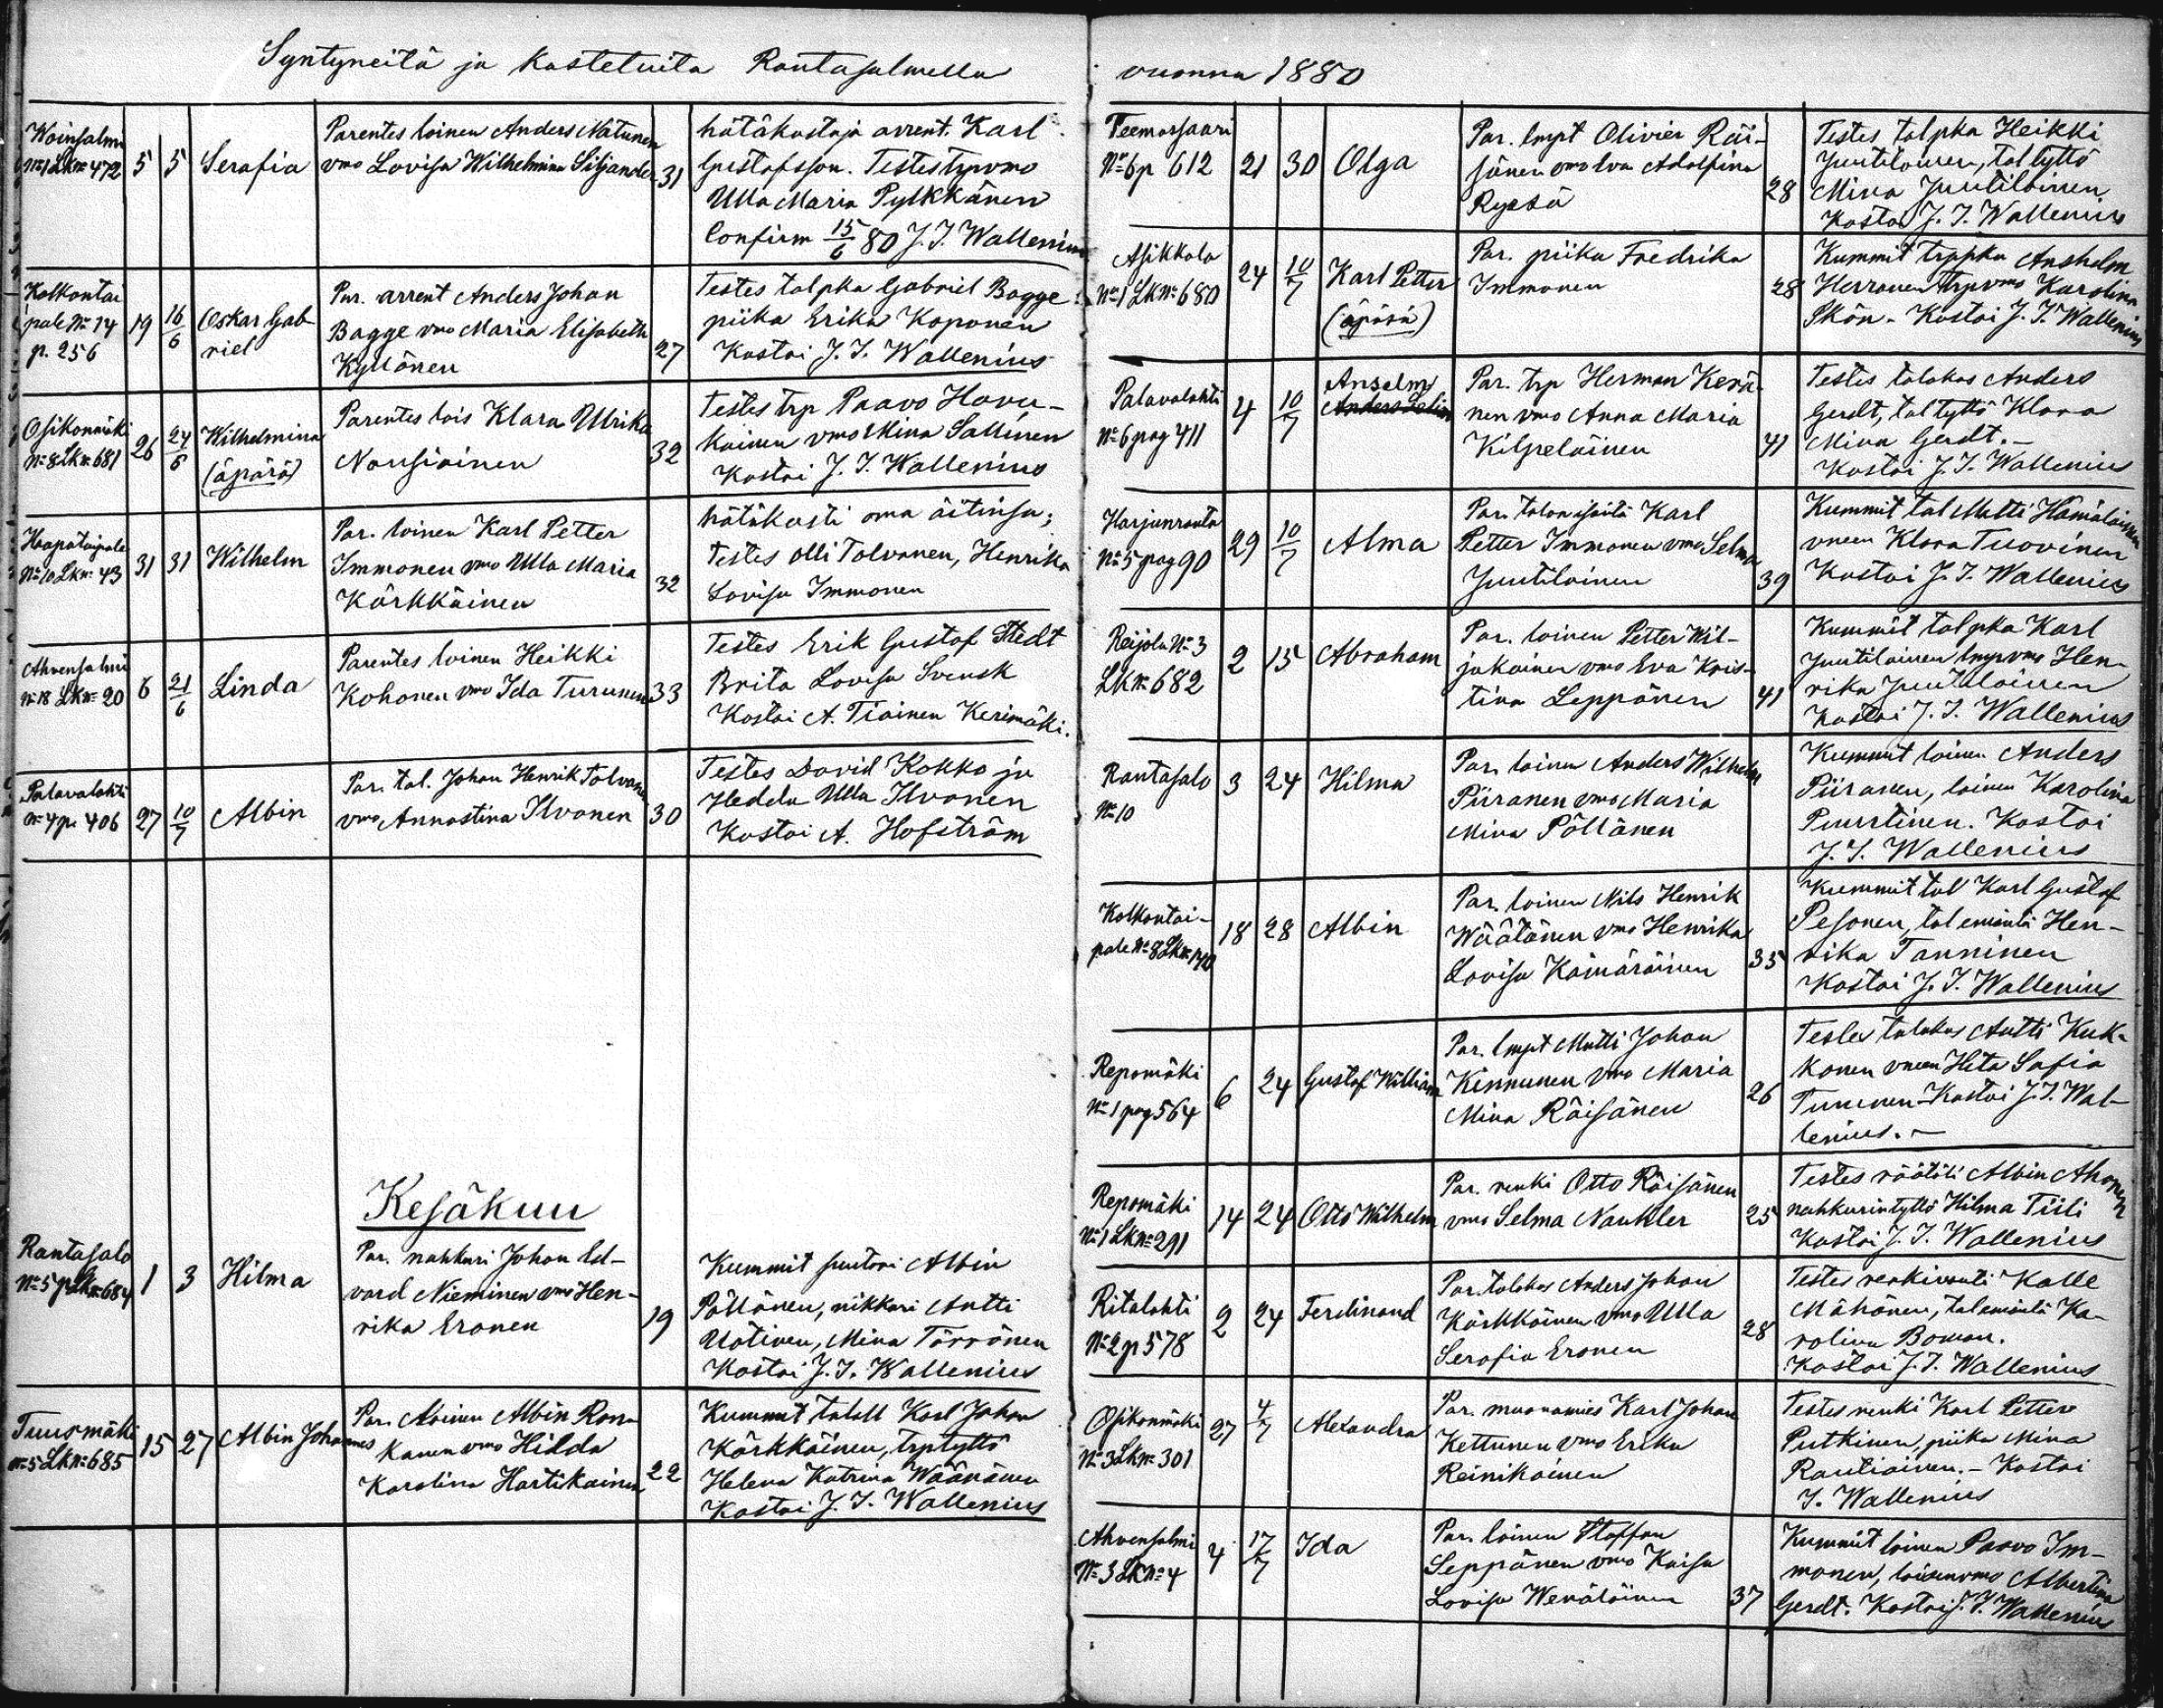 Syntyneitä ja kastetuita Rantasalmella
Koinsalmi
No 1 Lk No 472
5
5
Serafia
Parentes loinen Anders Natunen
vmo Lovisa Wilhelmina Siljander
31
hätäkastaja arrent. Karl
Gustafsson. Testes trpvmo
Ulla Maria Pylkkänen
Confirm 15/6 80 J. I. Wallenius
Kolkontai
pale No 14
p. 256
19
16/6
Oskar Gab-
riel
Par. arrent Anders Johan
Bagge vmo Maria Elisabeth
Kyllönen
27
Testes talpka Gabriel Bagge
piika Erika Koponen
Kastoi J. I. Wallenius
Osikonmäki
No 8 Lk No 681
26
24/6
Wilhelmina
(äpärä)
Parentes lois Klara Ulrika
Nousiainen
32
Testes trp Paavo Havu-
kainen vmo Mina Sallinen
Kastoi J. I. Wallenius
Haapataipale
No 10 Lk No 43
31
31
Wilhelm
Par. loinen Karl Petter
Immonen vmo Ulla Maria
Kärkkäinen
32
hätäkasti oma äitinsä;
Testes Olli Tolvanen, Henrika
Lovisa Immonen
Ahvensalmi
No 18 Lk No 20
6
21/6
Linda
Parentes loinen Heikki
Kohonen vmo Ida Turunen
33
Testes Erik Gustaf Stedt
Brita Lovisa Svensk
Kastoi A. Tiainen Kerimäki.
Palavalahti
No 4 p. 406
27
10/7
Albin
Par. tal. Johan Henrik Tolvanen
vmo Annastina Ilvonen
30
Testes David Kokko ja
Hedda Ulla Ilvonen
Kastoi A. Hofström
Kesäkuu
Rantasalo
No 5 Lk No 684
1
3
Hilma
Par. nahkuri Johan Ed-
vard Nieminen vmo Hen-
rika Eronen
19
Kummit suutari Albin
Pöllänen, nikkari Antti
Uotinen, Mina Törrönen
Kastoi J. I. Wallenius
Tuusmäki
No 5 Lk No 685
15
27
Albin Johannes
Par. loinen Albin Ron-
kanen vmo Hilda
Karolina Hartikainen
22
Kummit talell Karl Johan
Kärkkäinen, trptyttö
Helena Katrina Wäänänen
Kastoi J. I. Wallenius
vuonna 1880
Teemassaari
No 6 p 612
21
30
Olga
Par. lmpt Olivier Räi-
sänen vmo Eva Adolfina
Ryesä
28
Testes talpka Heikki
Juutilainen, tal tyttö
Mina Juutilainen
Kastoi J. I. Wallenius
Asikkala
No 1 Lk No 680
24
10/7
Karl Petter
(äpärä)
Par. piika Fredrika
Immonen
28
Kummit trppka Anshelm
Herranen trpvmo Karolina
Skön. Kastoi J. I. Wallenius
Palavalahti
No 6 pag 411
4
10/7
Anselm
Par. trp Herman Kerä-
nen vmo Anna Maria
Kilpeläinen
41
Testes talokas Anders
Gerdt, tal tyttö Klara
Mina Gerdt.-
Kastoi J. I. Wallenius
Harjunranta
No 5 pag 90
29
10/7
Alma
Par. talon isäntä Karl
Petter Immonen vmo Selma
Juutilainen
39
Kummit tal Matti Hämäläinen
vneen Klara Tuovinen
Kastoi J. I. Wallenius
Reijola No 3
Lk No 682
2
15
Abraham
Par. loinen Petter Wil-
jakainen vmo Eva Kris-
tina Leppänen
41
Kummit talpka Karl
Juutilainen lmpvmo Hen-
rika Juutilainen
Kastoi J. I. Wallenius
Rantasalo
No 10
3
24
Hilma
Par. loinen Anders Wilhelm
Piiranen vmo Maria
Mina Pöllänen
Kummit loinen Anders
Piiranen, loinen Karolina
Puurtinen. Kastoi
J. I. Wallenius
Kolkontai-
pale No 8 Lk No 140
18
28
Albin
Par. loinen Nils Henrik
Wäätänen vmo Henrika
Lovisa Kämäräinen
35
Kummit tal Karl Gustaf
Pesonen, tal emäntä Hen-
rika Tanninen
Kastoi J. I. Wallenius
Repomäki
No 1 pag 564
6
24
Gustaf William
Par. lmpt Matti Johan
Kinnunen vmo Maria
Mina Räisänen
26
Testes talokas Antti Kuk-
konen vneen Heta Sofia
Tununen Kastoi J. I. Wal-
lenius.-
Repomäki
No 1 Lk No 291
14
24
Otto Wilhelm
Par. renki Otto Räisänen
vmo Selma Naukler
25
Testes räätäli Albin Ahonen
nahkurintyttö Hilma Tiili
Kastoi J. I. Wallenius
Ritalahti
No 2 p 578
2
24
Ferdinand
Par. talokas Anders Johan
Kärkkäinen vmo Ulla
Serafia Eronen
28
Testes renkivouti Kalle
Mähönen, talemäntä Ka-
rolina Boman.
Kastoi J. I. Wallenius
Osikonmäki
No 3 Lk No 301
27
4/7
Alexandra
Par. muonamies Karl Johan
Kettunen vmo Erika
Reinikainen
Testes renki Karl Petter
Putkinen, piika Mina
Rautiainen.- Kastoi
I. Wallenius
Ahvensalmi
No 3 Lk No 4
4
17/7
Ida
Par. loinen Staffan
Seppänen vmo Kaisa
Lovisa Wenäläinen
37
Kummit loinen Paavo Im-
monen, loisenvmo Albertina
Gerdt. Kastoi J. I. Wallenius